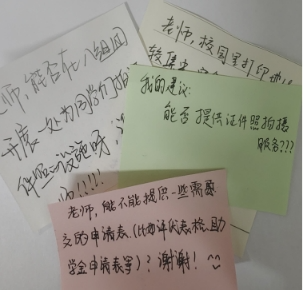 师,能否在八组团
开展一处为同学们拍
件照
!!!!
老师,校园里打印
较集中
我的建议:
能否提供证件照拍摄
服务???
老师,能不能提供一些需要
交的申请表(比如评优表格、助
学金申请表等)?谢谢!